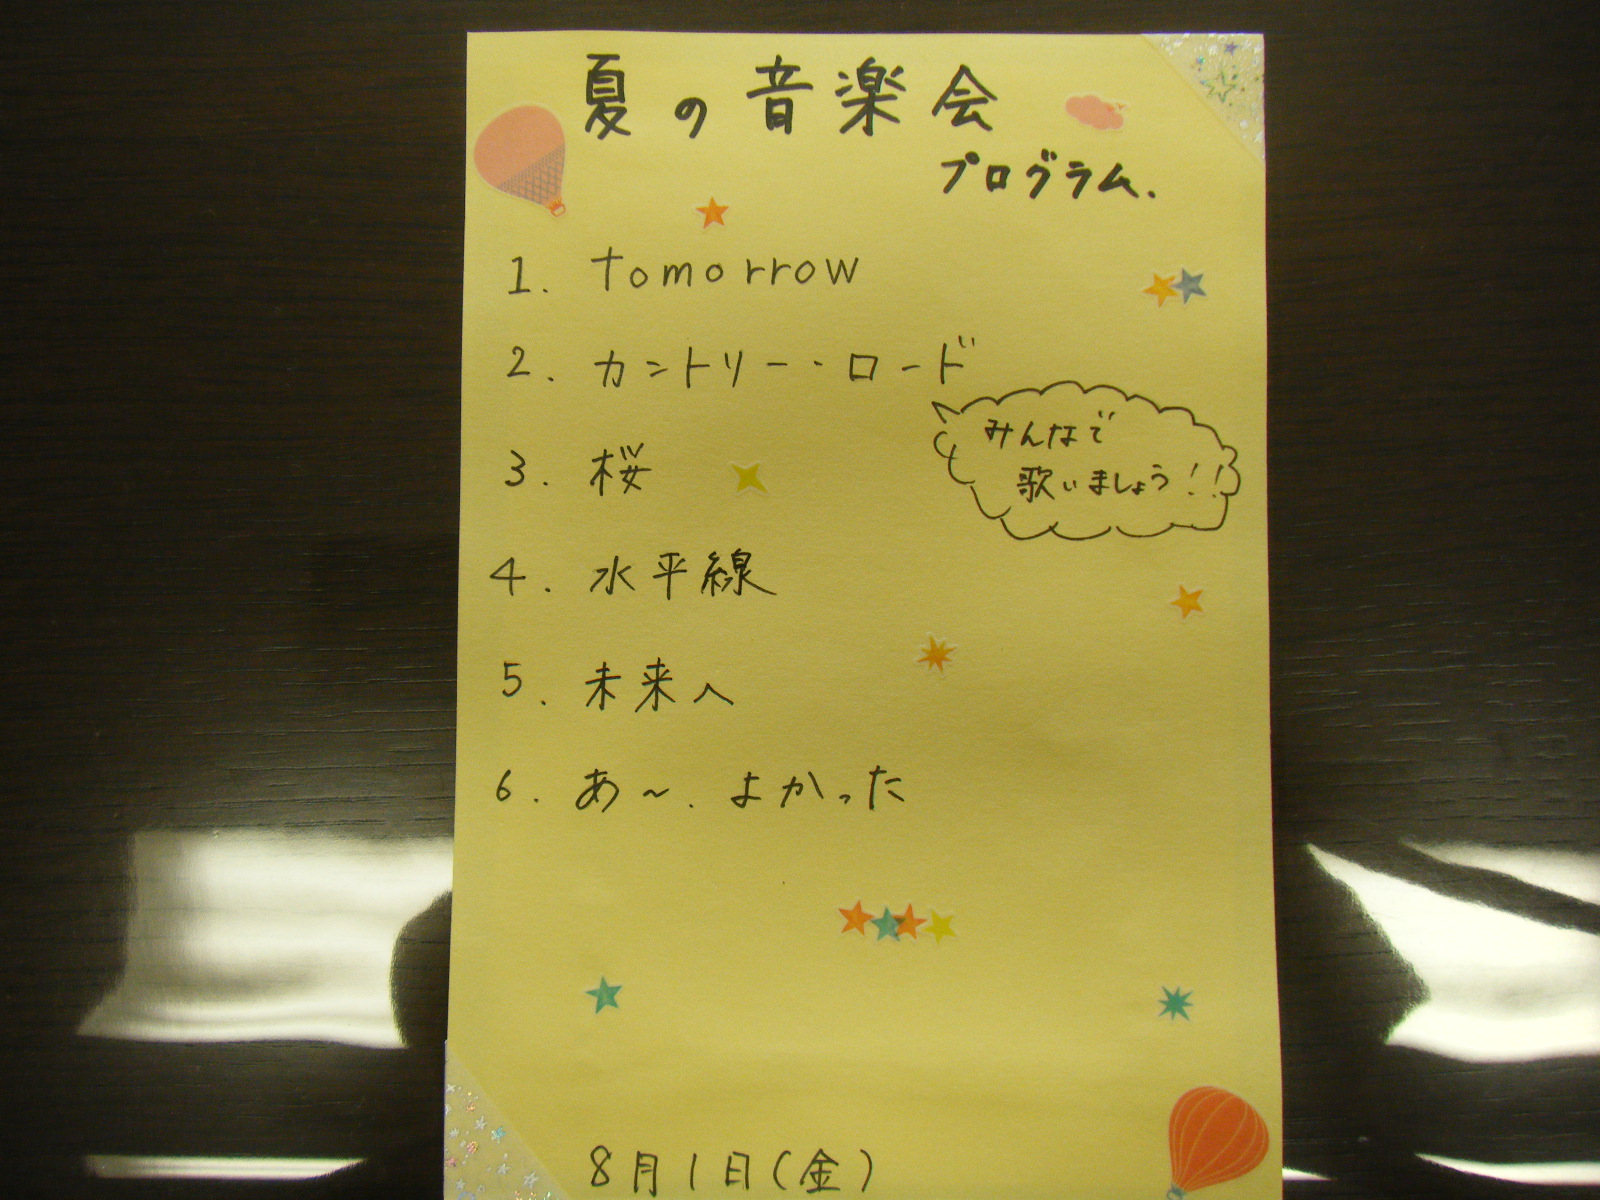 夏の音楽会
プログラム.
1. tomorrow
2. カントリー・ロード
みんなで
歌いましょう!!
3. 桜
4. 水平線
5. 未来へ
6. あ〜.よかった
8月1日(金)